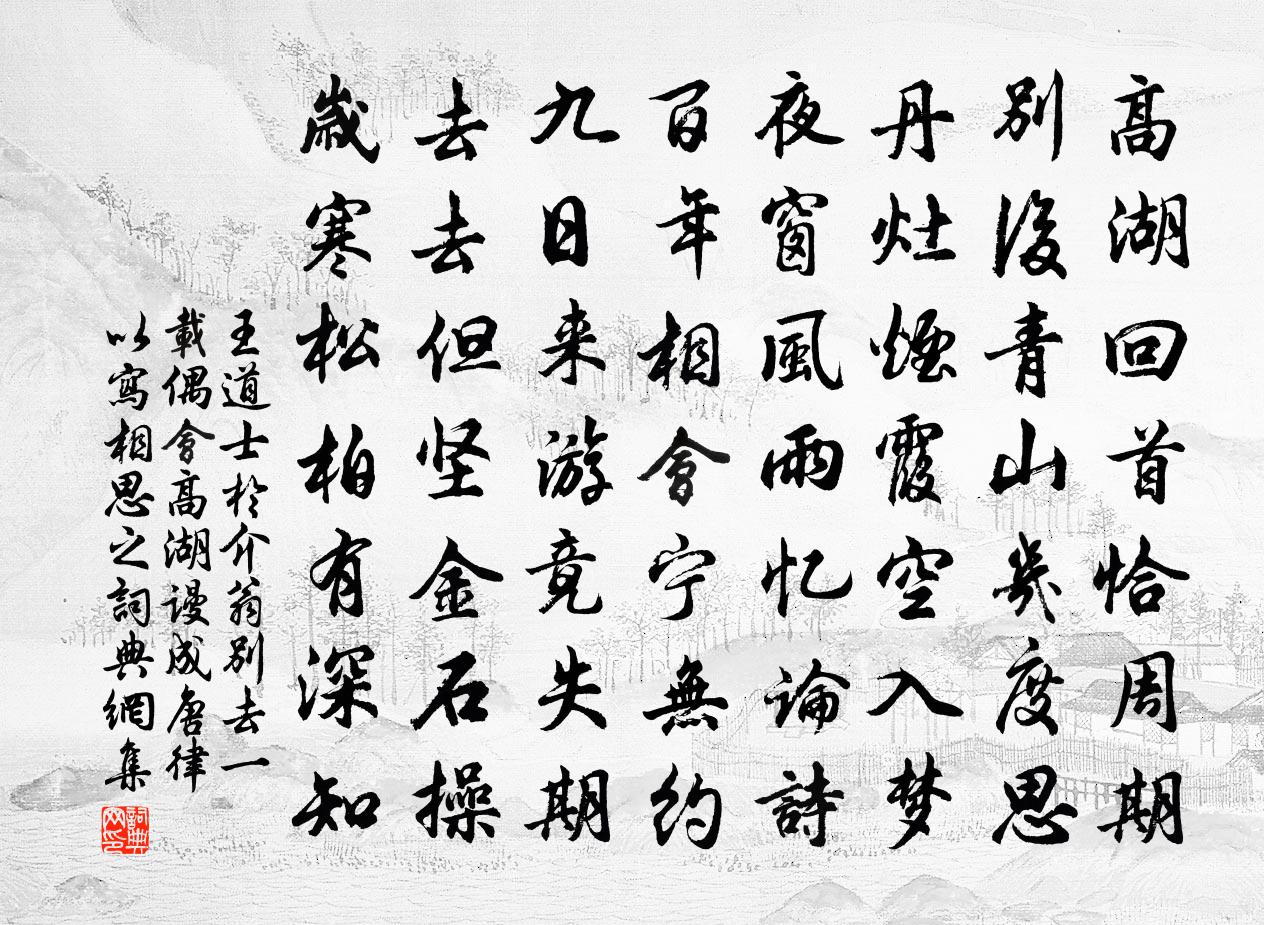 高湖回首恰周期
别後青山幾度思
丹灶煙霞空入梦
夜窗風雨忆論詩
百年相會宁無約
九日来游竟失期
去去但坚金石操
歲寒松柏有深知
王道士於介翁别去一
載偶會高湖谩成唐律
以寫相思之詞典網集
詞典網印